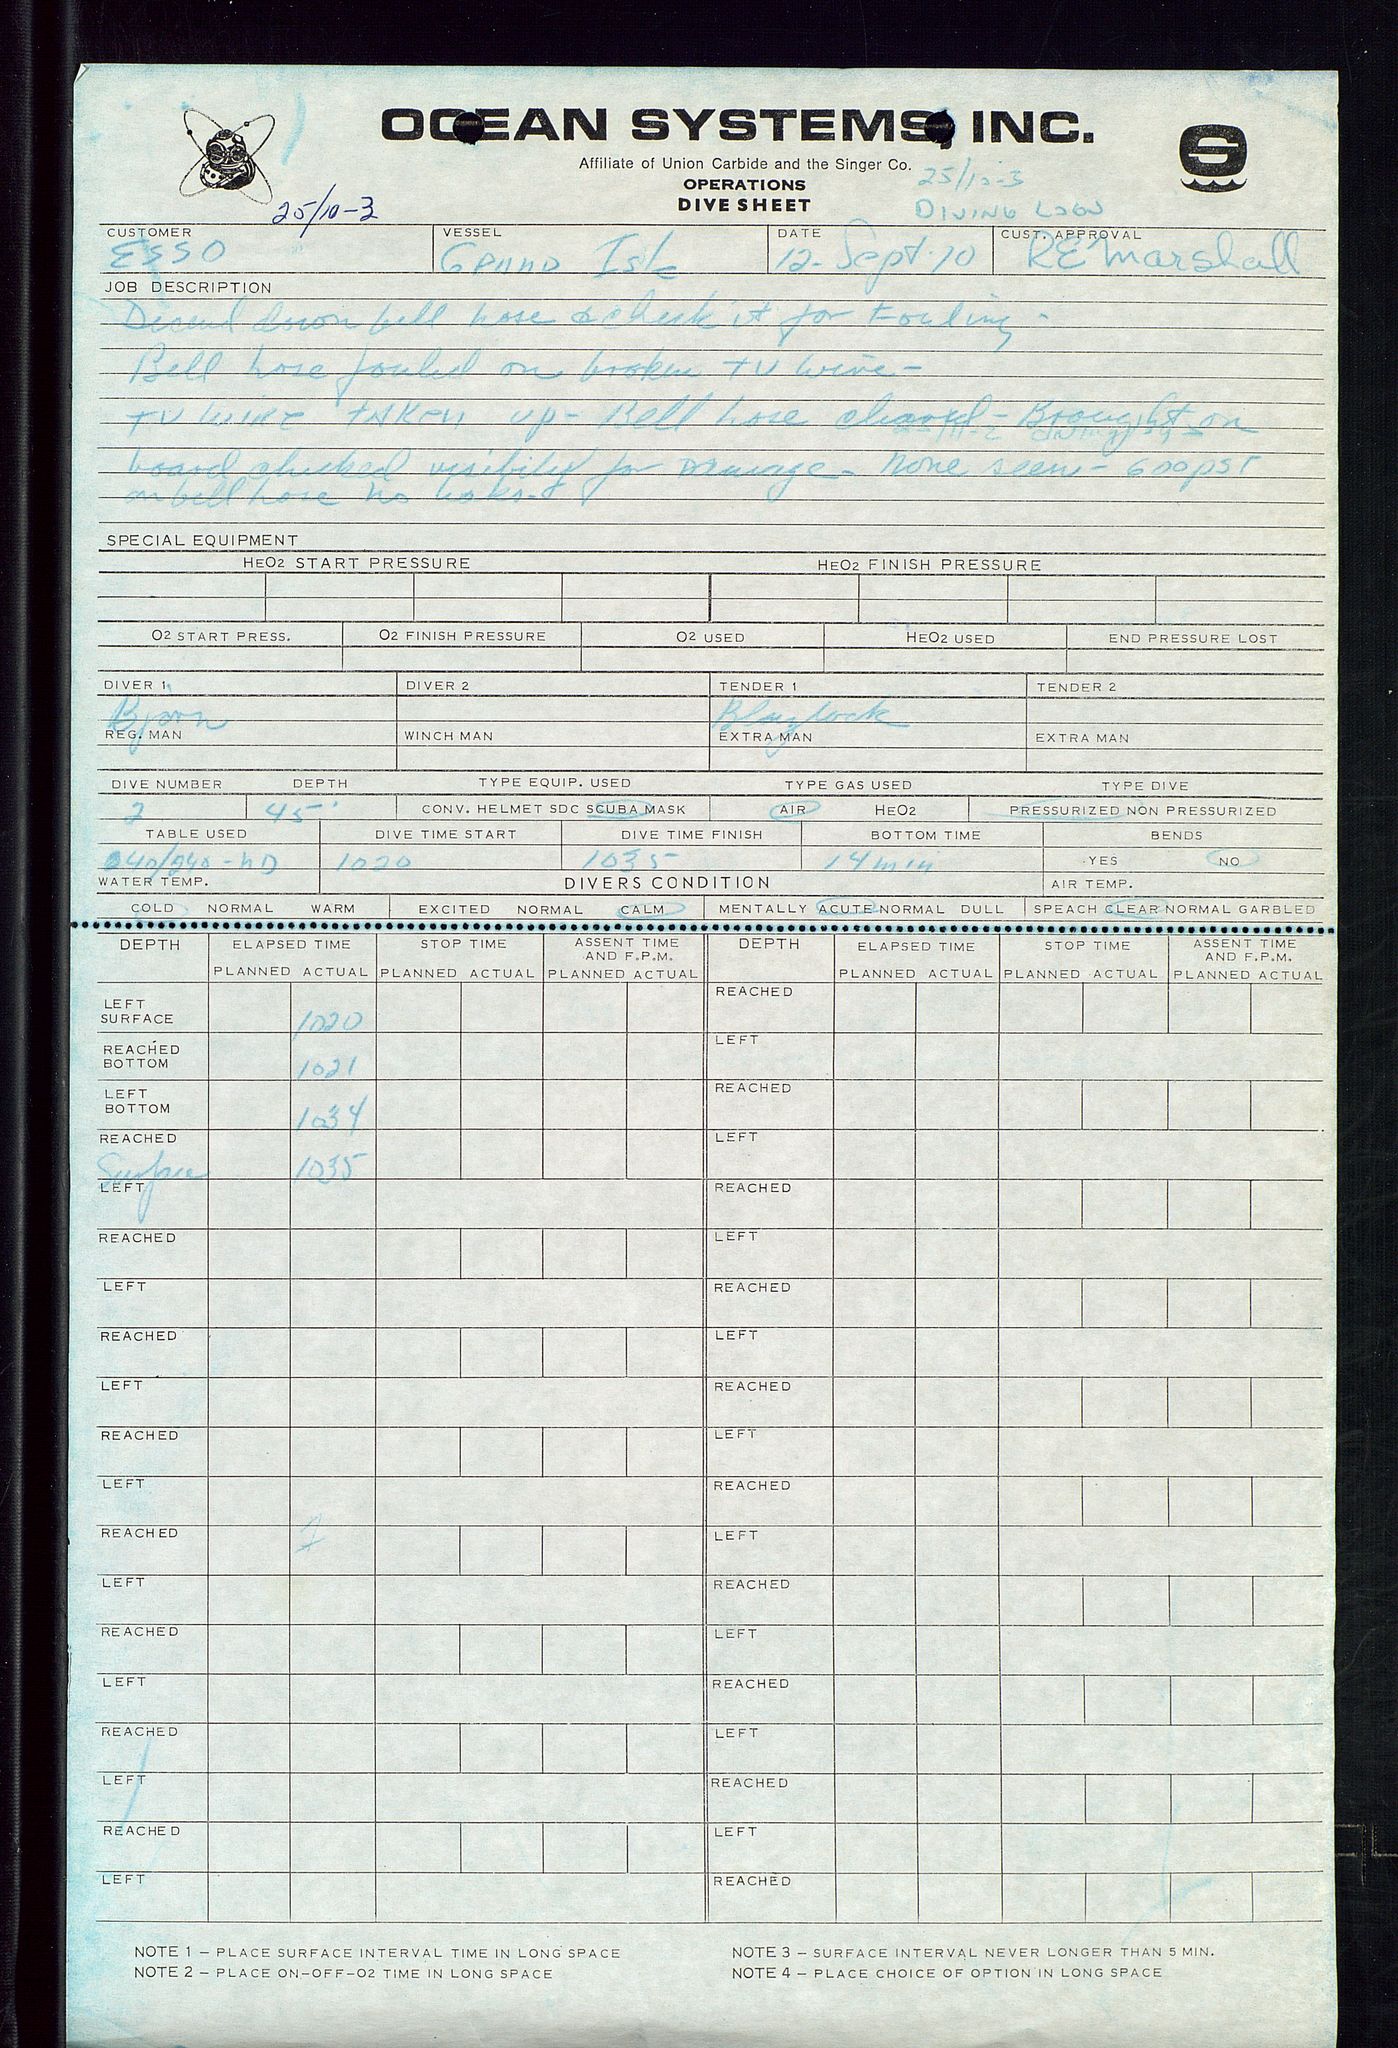 OCEAN SYSTEMS, INC.
Affiliate of Union Carbide and the Singer Co.
OPERATIONS
DIVE SHEET
25/10-3
25/10-3
DIVING LOGS
CUSTOMER VESSEL DATE CUST. APPROVAL
ESSO Grand Isle 12 Sept 70 R E Marshall
JOB DESCRIPTION
Decend down bell hose & check it for Fouling -
Bell hose fouled on broken TV wire -
TV WIRE TAKEN up - Bell hose cleared - Brought on
board checked visibility for Damage - None seen - 600 psi
on bell hose no leaks.
SPECIAL EQUIPMENT
HeO2 START PRESSURE HeO2 FINISH PRESSURE
O2 START PRESS. O2 FINISH PRESSURE O2 USED HeO2 USED END PRESSURE LOST
DIVER 1 DIVER 2 TENDER 1 TENDER 2
Bjorn Blaylock
REG. MAN WINCH MAN EXTRA MAN EXTRA MAN
DIVE NUMBER DEPTH TYPE EQUIP. USED TYPE GAS USED TYPE DIVE
2 45' CONV. HELMET SDC SCUBA MASK AIR HeO2 PRESSURIZED NON PRESSURIZED
TABLE USED DIVE TIME START DIVE TIME FINISH BOTTOM TIME BENDS
040/240-ND 1020 1035 14 min YES NO
WATER TEMP. DIVERS CONDITION AIR TEMP.
COLD NORMAL WARM EXCITED NORMAL CALM MENTALLY ACUTE NORMAL DULL SPEACH CLEAR NORMAL GARBLED
DEPTH ELAPSED TIME STOP TIME ASSENT TIME AND F.P.M. DEPTH ELAPSED TIME STOP TIME ASSENT TIME AND F.P.M.
PLANNED ACTUAL PLANNED ACTUAL PLANNED ACTUAL PLANNED ACTUAL PLANNED ACTUAL PLANNED ACTUAL
LEFT SURFACE 1020 REACHED
REACHED BOTTOM 1021 LEFT
LEFT BOTTOM 1034 REACHED
REACHED Surface 1035 LEFT
LEFT REACHED
REACHED LEFT
LEFT REACHED
REACHED LEFT
LEFT REACHED
REACHED LEFT
LEFT REACHED
REACHED LEFT
LEFT REACHED
REACHED LEFT
LEFT REACHED
REACHED LEFT
LEFT REACHED
REACHED LEFT
LEFT REACHED
NOTE 1 – PLACE SURFACE INTERVAL TIME IN LONG SPACE
NOTE 2 – PLACE ON-OFF-O2 TIME IN LONG SPACE
NOTE 3 – SURFACE INTERVAL NEVER LONGER THAN 5 MIN.
NOTE 4 – PLACE CHOICE OF OPTION IN LONG SPACE